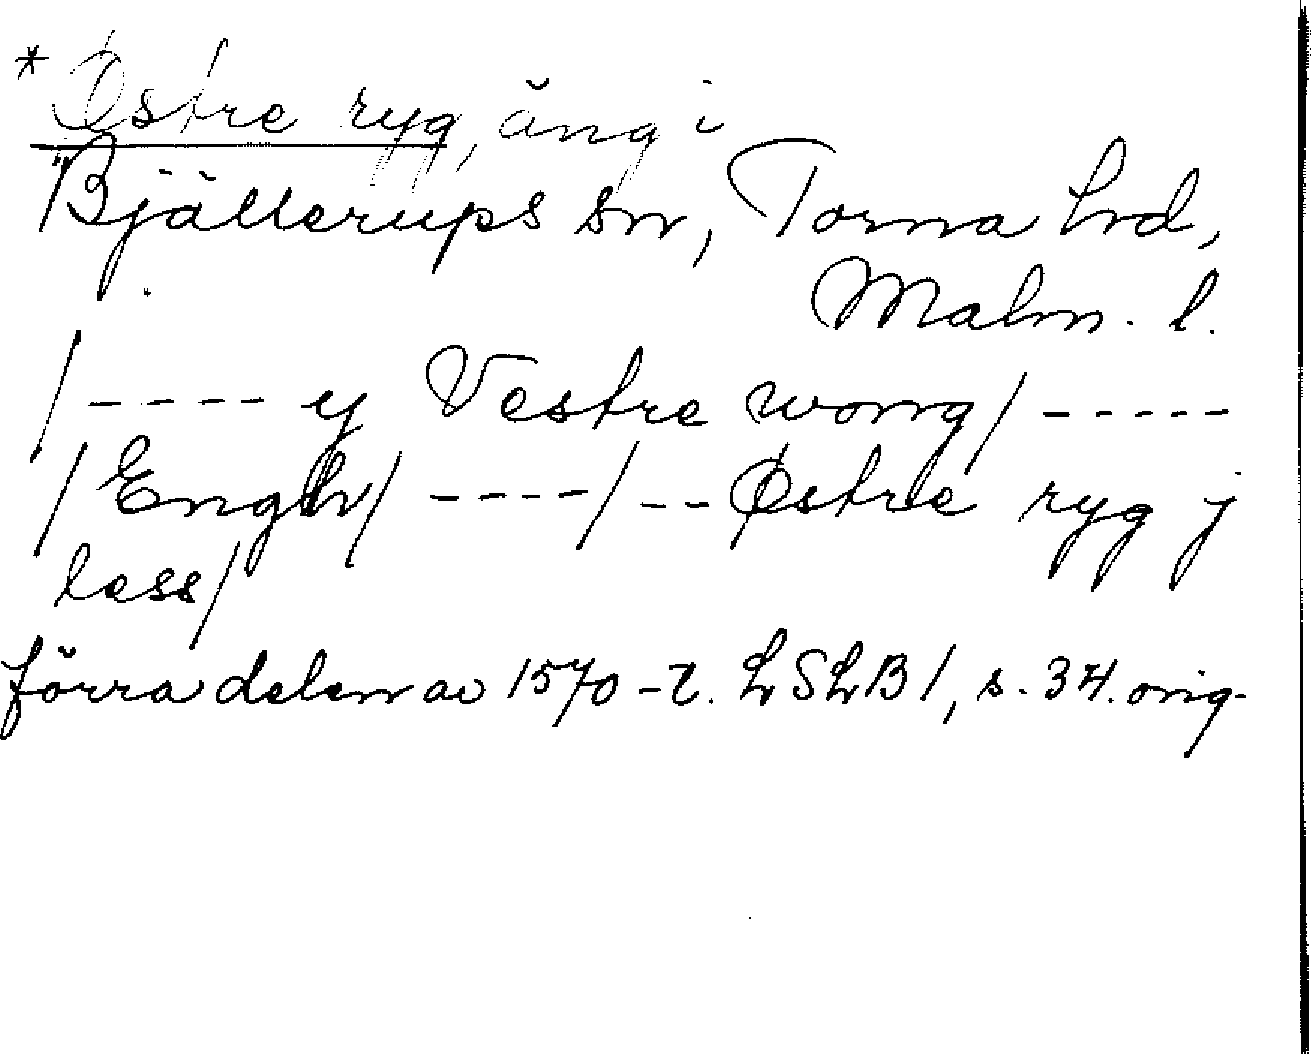 * Østre ryg, äng i
Bjällerups sn, Torna hd,
Malm. l.
/---- y Vestre wong/-----
/Engh/ ----/--Østre ryg j
less/
förra delen av 1570-t. LSLB 1, s. 34. orig.